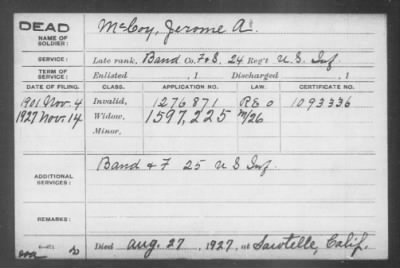 DEAD
NAME OF SOLDIER: McCoy, Jerome A.
SERVICE: Late rank, Band Co. F&S, 24 Reg't U.S. Inf
TERM OF SERVICE: Enlisted , 1 Discharged , 1
DATE OF FILING. CLASS. APPLICATION NO. LAW. CERTIFICATE NO.
1901 Nov. 4 Invalid, 1276871 1093336
1927 Nov. 14 Widow, 1597,225 m/26
Minor,
ADDITIONAL SERVICES: Band & F 25 U S Inf
REMARKS:
Died Aug. 27, 1927, at Sawtelle, Calif.